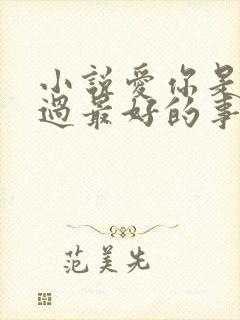 小說愛你是
過最好的事
范美先